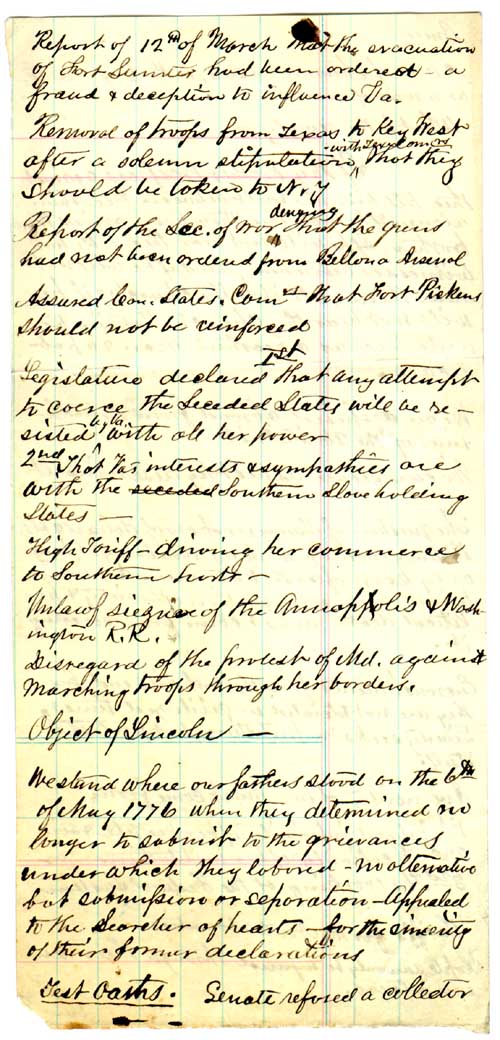 Report of 12th of March that the evacuation
of Fort Sumter had been ordered - a
fraud & deception to influence Va.
Removal of troops from Texas to Key West
after a solemn stipulation - with Texas Comrs that they
should be taken to N. Y
Report of the Sec. of War denying that the guns
had not been ordered from Bellona Arsenal
Assured Con. States. Comrs that Fort Pickens
should not be reinforced
Legislature declared Ist that any attempt
to coerce the Seceded States will be re-
sisted by Va. with all her power
2nd That Va's interests & sympathies are
with the seceded Southern Slave holding
States -
High Tariff - driving her commerce
to Southern ports -
Unlawf siezure of the Annapolis & Wash-
ington R.R.
Disregard of the protest of Md. against
marching troops through her borders.
Object of Lincoln -
We stand where our fathers stood on the 6th
of May 1776 when they determined no
longer to submit to the grievances
under which they labored - no alternative
but submission or separation - Appealed
to the Searcher of hearts - for the sincerity
of their former declarations
Test Oaths. Senate refused a collector